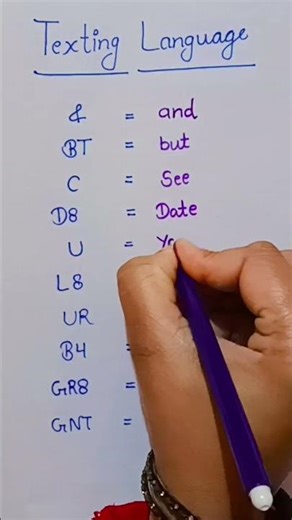 Texting Language
& = and
BT = but
C = See
D8 = Date
U =
L8
UR
B4 =
GR8 =
GNT =